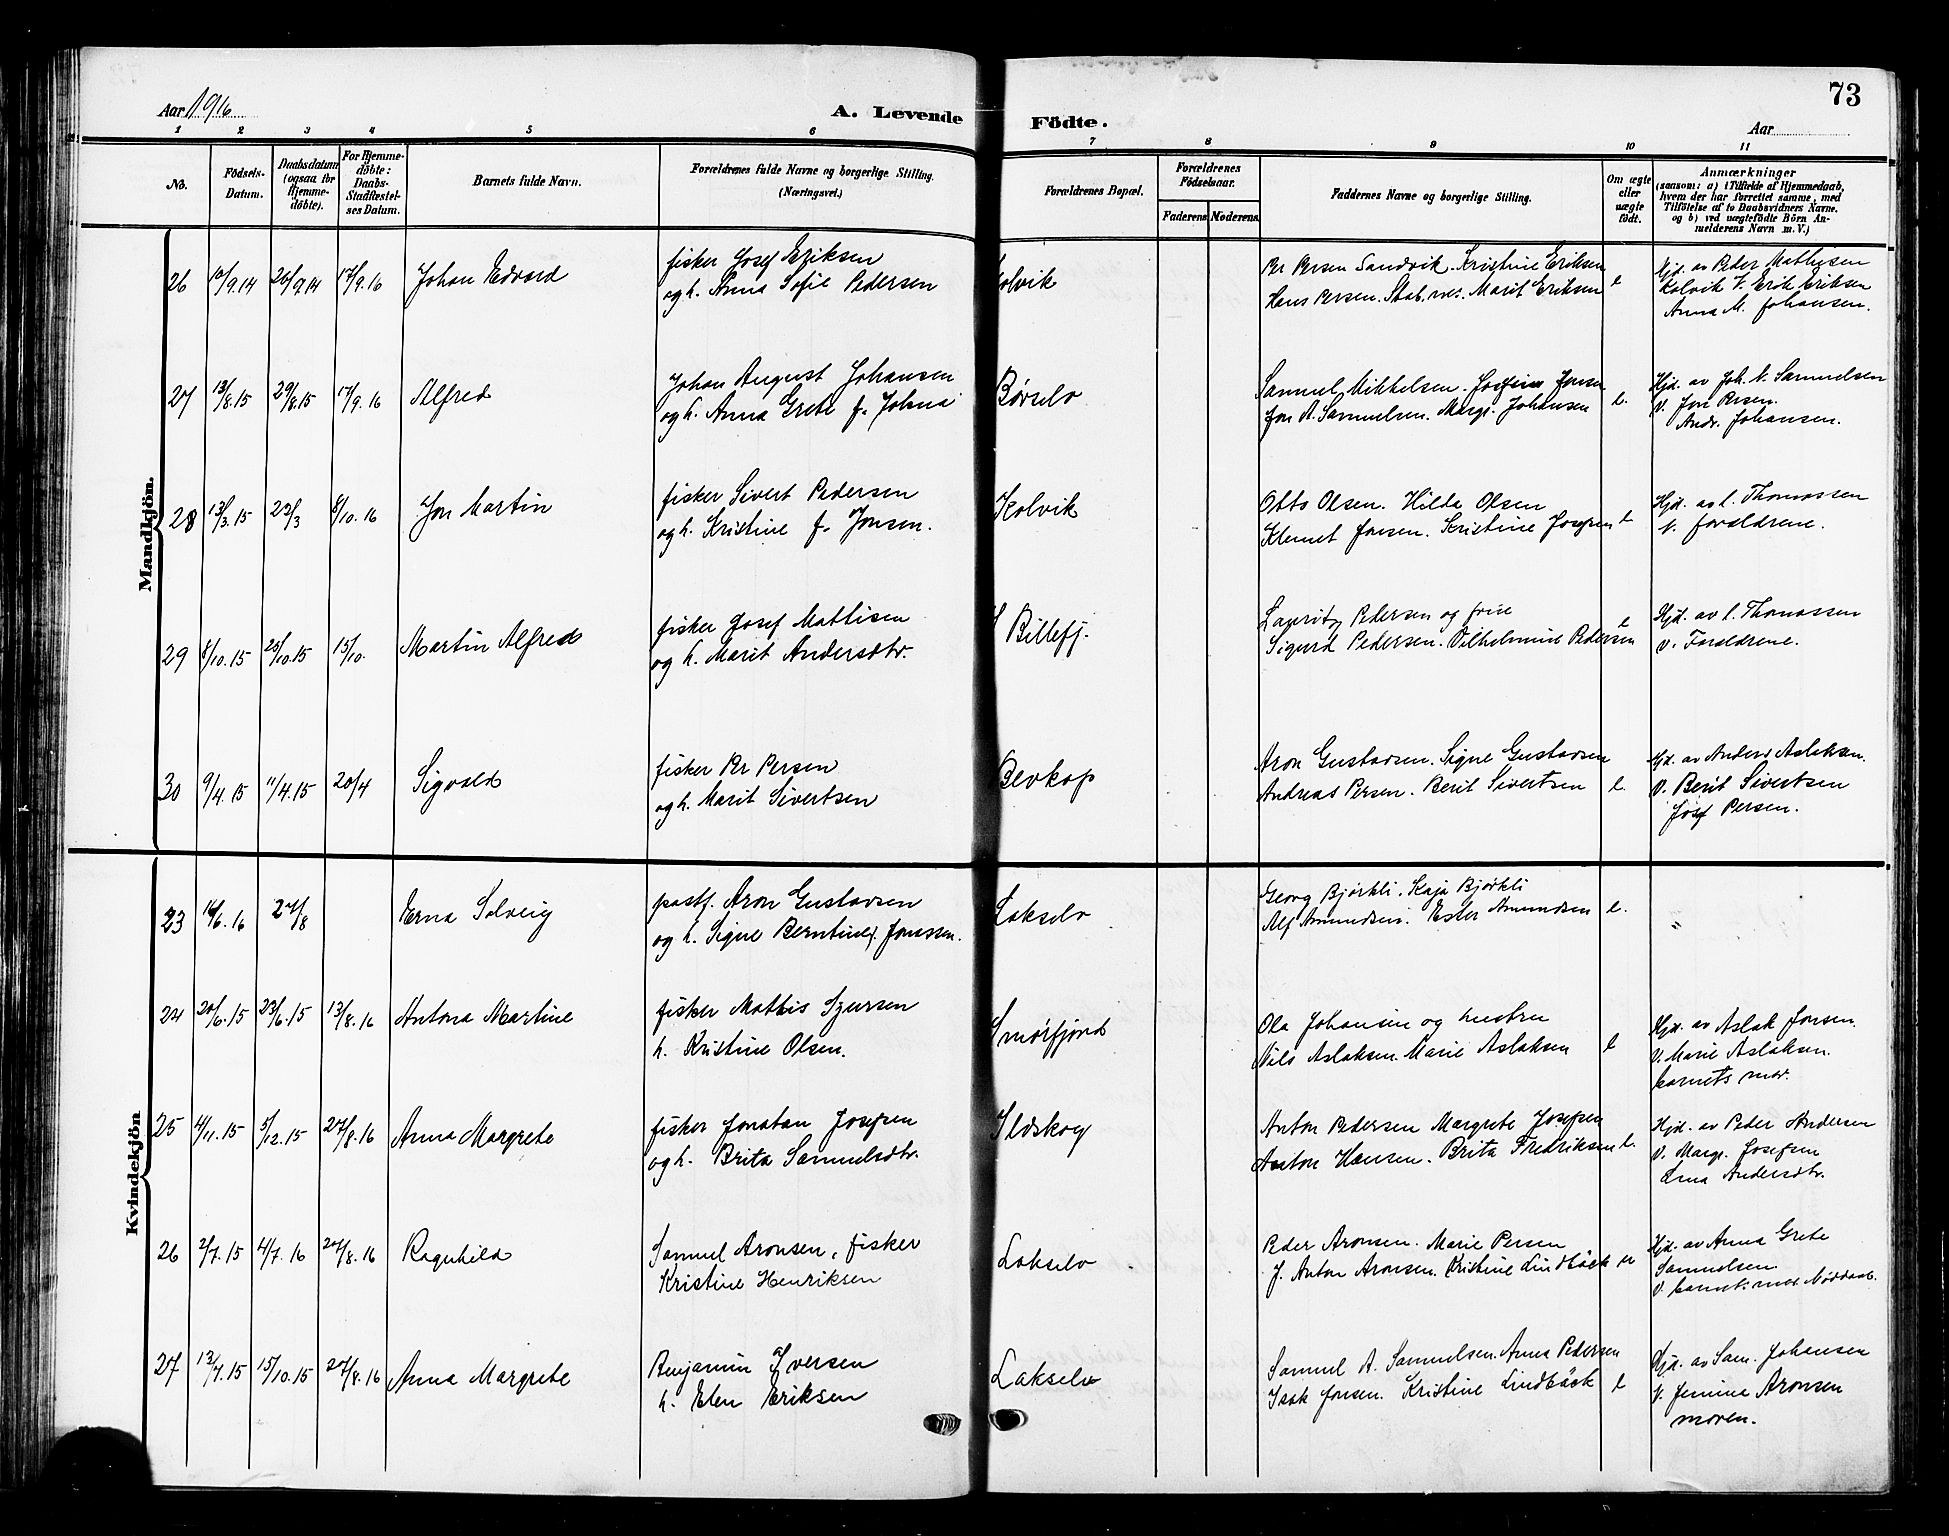 73
Aar 1916
A. Levende Födte.
Aar
1 2 3 4 5 6 7 8 9 10 11
No.
Födsels-
Datum.
Daabsdatum
(ogsaa for
Hjemme-
döbte).
For Hjemme-
döbte:
Daabs-
Stadfæstel-
ses Datum.
Barnets fulde Navn.
Forældrenes fulde Navne og borgerlige Stilling.
(Næringsvei.)
Forældrenes Bopæl.
Forældrenes
Födselsaar.
Faderens Moderens
Faddernes Navne og borgerlige Stilling.
Om ægte
eller
uægte
födt.
Anmærkninger
(saasom: a) i Tilfælde af Hjemmedaab,
hvem der har forrettet samme, med
Tilföielse af to Daabsvidners Navne,
og b) ved uægtefödte Börn An-
melderens Navn m. V.)
Mandkjön.
26 10/9.14 26/9.14 17/9.16 Johan Edvard
fisker Josef Eriksen
og h. Anna Sofie Pedersen
Kolvik
Per Persen Sandvik. Kristine Eriksen
Hans Persen. Stab.nes. Marit Eriksen e
Hjd. av Peder Mathisen
Kolvik V. Erik Eriksen
Anna M. Johansen.
27 13/8.15 29/8.15 17/9.16 Alfred
Johan August Johansen
og h. Anna Grete f. Johna
Børselv
Samuel Mikkelsen. Josefine Jonsen
Jon A. Samuelsen. Margr. Johansen e.
Hjd. av Joh. N. Samuelsen
V. Jon Persen.
Andr. Johansen.
28 13/3.15 22/3 8/10.16 Jon Martin
fisker Sivert Pedersen
og h. Kristine f. Jonsen.
Kolvik
Otto Olsen. Hilda Olsen
Klemet Jonsen. Kristine Josefsen e
Hjd. av l. Thomassen
V. forældrene.
29 8/10.15 25/10.15 15/10. Martin Alfred
fisker Josef Mattisen
og h. Marit Andersdtr.
Billefj.
Pedersen og frue
Sigurd Pedersen. Vilhelmine Pedersen e
Hjd. av l. Thomassen
V. Forældrene.
30 9/4.15 11/4.15 20/4 Sigvald
fisker Per Persen
og h. Marit Sivertsen
Bevkop
Aron Gustavsen. Signe Gustavsen
Andreas Persen. Berit Sivertsen e.
Hjd. av Anders Aslaksen.
V. Berit Sivertsen
Josef Persen.
Kvindekjön
23 16/6.16 27/8 Erna Solveig
postf. Aron Gustavsen
og h. Signe Berntine f. Jonassen.
Lakselv
Georg Bjørkli. Kaja Bjørkli
Alf Amundsen. Ester Amundsen e.
"
24 20/6.15 23/6.15 13/8.16 Antona Martine
fisker Mathis Sjursen
h. Kristine Olsen.
Smørfjord
Ola Johansen og hustru
Nils Aslaksen. Marie Aslaksen e
Hjd. av Aslak Jonsen.
V. Marie Aslaksen.
barnets mor.
25 4/11.15 5/12.15 27/8.16 Anna Margrete
fisker Jonatan Josefsen
og h. Brita Samuelsdtr.
Ildskog
Anton Pedersen Margrete Josefsen
Anton Hansen. Brita Fredriksen e.
Hjd. av Peder Andersen
V. Margr. Josefsen
Andersdtr.
26 2/7.15 4/7.16 27/8.16 Ragnhild
Samuel Aronsen, fisker
Kristine Henriksen
Lakselv
Peder Aronsen. Marie Persen
J. Anton Aronsen. Kristine Lindbäck
Hjd. av Anna Grete
Samuelsen.
V. barnets mor Nøddaab.
27 13/7.15 15/10.15 27/8.16 Anna Margrete
Benjamin Iversen
h. Elen Eriksen
Lakselv
Samuel A. Samuelsen. Anna Pedersen
Isak Jonsen. Kristine Lindbäck e
Hjd. av Sam. Johansen
V. Jemina Aronsen
moren.